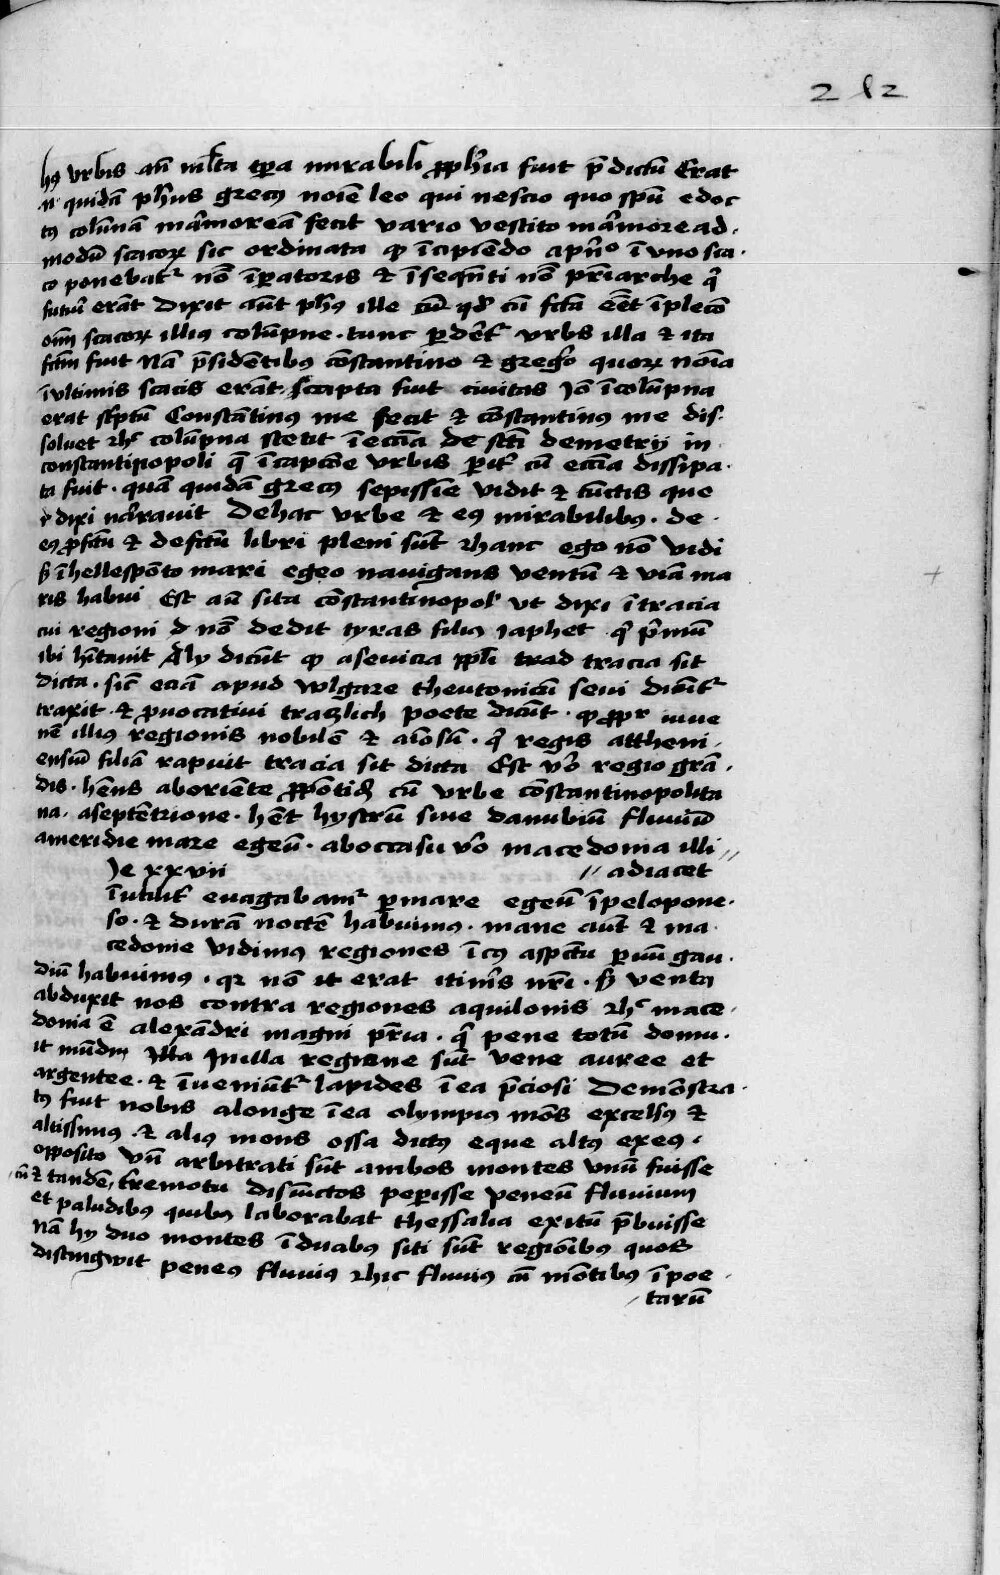 2 l2
hꝰ vrbis añ ml̃ta tꝑa mirabili ꝓph̃ia fuit p̃dictũ Erat
n̄ quidã ph̃us grecꝰ noīe leo qui nescio quo spũ edoc
tꝰ colũnã mar̃moreã fecit vario vestito mar̃more ad
modũ scacoꝝ sic ordinata ꝙ īcipiẽdo a pr̃io ī vno sca
co ponebatᷣ nõ īpatoris ⁊ ī seq̃nti nõ pr̃iarche qͥ
futurͥ erãt Dixit aũt ph̃us ille qđ cũ fc̃a eẽt īplecõ
oīm scacoꝝ illiꝰ colũpne · tunc ꝑderet᷑ vrbs illa ⁊ ita
fc̃m fuit Nã p̃sidẽtibꝰ cõstantino ⁊ greg̃o quoꝝ noīa
ī vltimis scacis erãt · capta fuit ciuitas Jõ ī colũpna
erat sc̃ptũ Constãtinꝰ me fecit ⁊ cõstantinꝰ me dis
soluet ⁊hͨ colũpna stetit ī eccĩa de sc̃ti demetrij in
constantinopoli q̃ ī capcõe vrbis ꝑit᷑ cũ eccĩa dissipa
ta fuit · quã quidã grecꝰ sepissĩe vidit ⁊ cũctis que
dixi nar̃rauit De hac vrbe ⁊ eꝰ mirabilibꝰ · de
eꝰ ꝓfc̃u ⁊ defc̃u libri pleni sũt ⁊hanc ego nõ vidi
sꝫ ī hellespõto mari egeo nauigans ventũ ⁊ viã ma
ris habui Est aũ sita cõstantinopol᷑ vt dixi ī tracia
cui regioni d nõ dedit tyras filiꝰ iaphet qͥ pͥmũ
ibi hĩtauit Aly dicũt ꝙ a seuicia ppl̃i trad tracia sit
dicta · sic̃ eciã apud vlgare theutonicũ seui dicũt᷑
traxit · ⁊ ꝓuocatiui traczlich poete dicũt · ꝙ ꝓpᷣ iuue
nẽ illiꝰ regionis nobilẽ ⁊ aĩosũ · qͥ regis attheni
ensiũ filiã rapuit tracia sit dicta Est vͦo regio grã
dis · hẽns ab oriẽte ꝓpõtiđ cũ vrbe cõstantinopolita
na · a septẽtrione · hẽt hystrũ siue danubiũ fluuiũ
a meridie mare egeũ · ab occasu vͦo macedonia illi
// adiacet
Je xxvii
euagabamᷣ ꝑ mare egeũ ī pelopone
so · ⁊ durã noctẽ habuimꝰ · mane aũt ⁊ ma
cedonie vidimꝰ regiones ī cꝰ aspc̃tu ꝑuũ gau
diũ habuimꝰ · qꝛ nõ it erat itinͦis nr̃i · sꝫ ventꝰ
abduxit nos contra regiones aquilonis ⁊hͨ mace
donia ẽ alexãdri magni pr̃ia · qͥ pene totũ domu
it mũdũ Illa In illa regione sũt vene auree et
argentee · ⁊ īueniũt᷑ lapides ī ea p̃ciosi Demõstra
tꝰ fuit nobis a longe ī ea olympiꝰ mõs excelsꝰ ⁊
altissimus · ⁊ aliꝰ mons ossa dictꝰ eque altꝰ ex eꝰ
opposito vñ arbitrati sũt ambos montes vnũ fuisse
cũ ⁊ tandẽ t̃remotu disiũctos peperisse peneũ fluuium
et paludibꝰ quibꝰ laborabat thessalia exitũ p̃buisse
Nã hy duo montes ī duabꝰ siti sũt regiõibꝰ quos
distingwit peneꝰ fluuiꝰ ⁊hic fluuiꝰ cũ mõtibꝰ ī poe
tarũ